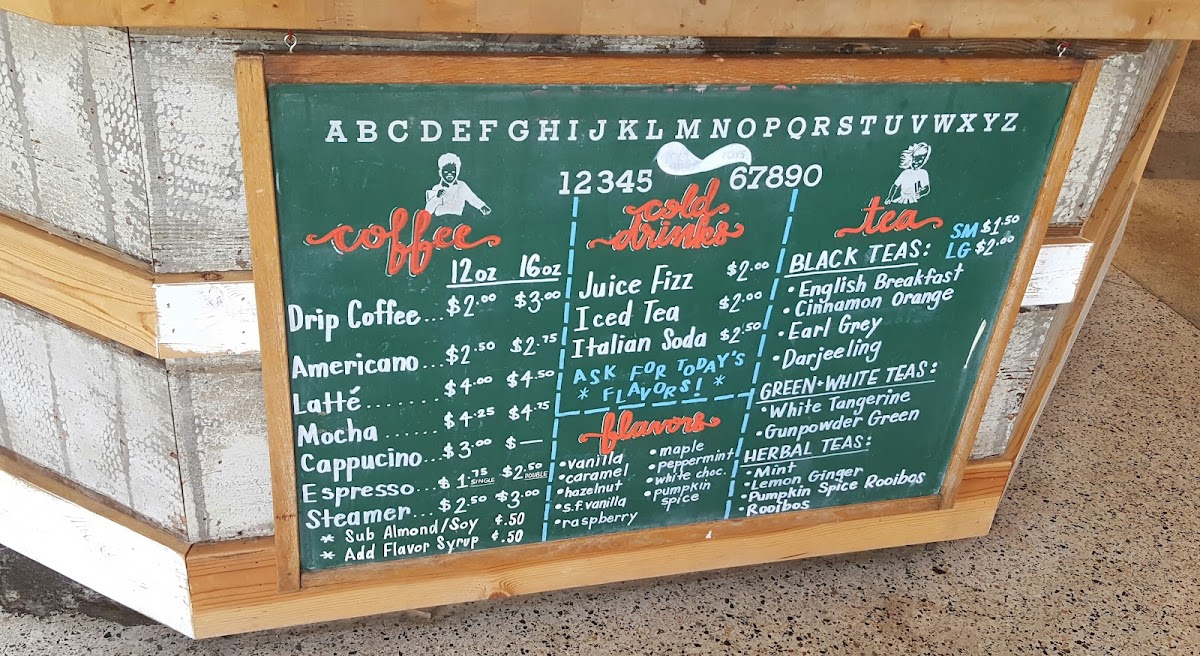 ABCDEFGHIJKLMNOPQRSTUVWXYZ
12345 67890
coffee
12oz 16oz
Drip Coffee... $2.00 $3.00
Americano... $2.50 $2.75
Latté....... $4.00 $4.50
Mocha ...... $4.25 $4.75
Cappucino... $3.00 $—
Espresso... $1.75 SINGLE $2.50 DOUBLE
Steamer... $2.50 $3.00
* Sub Almond/Soy ¢.50
* Add Flavor Syrup ¢.50
cold
drinks
Juice Fizz $2.00
Iced Tea $2.00
Italian Soda $2.50
ASK FOR TODAY'S
* FLAVORS! *
flavors
•vanilla
•caramel
•hazelnut
•s.f. vanilla
•raspberry
•maple
•peppermint
•white choc.
•pumpkin
spice
tea
SM $1.50
LG $2.00
BLACK TEAS:
•English Breakfast
•Cinnamon Orange
•Earl Grey
•Darjeeling
GREEN+WHITE TEAS:
•White Tangerine
•Gunpowder Green
HERBAL TEAS:
•Mint
•Lemon Ginger
•Pumpkin Spice Rooibos
•Rooibos